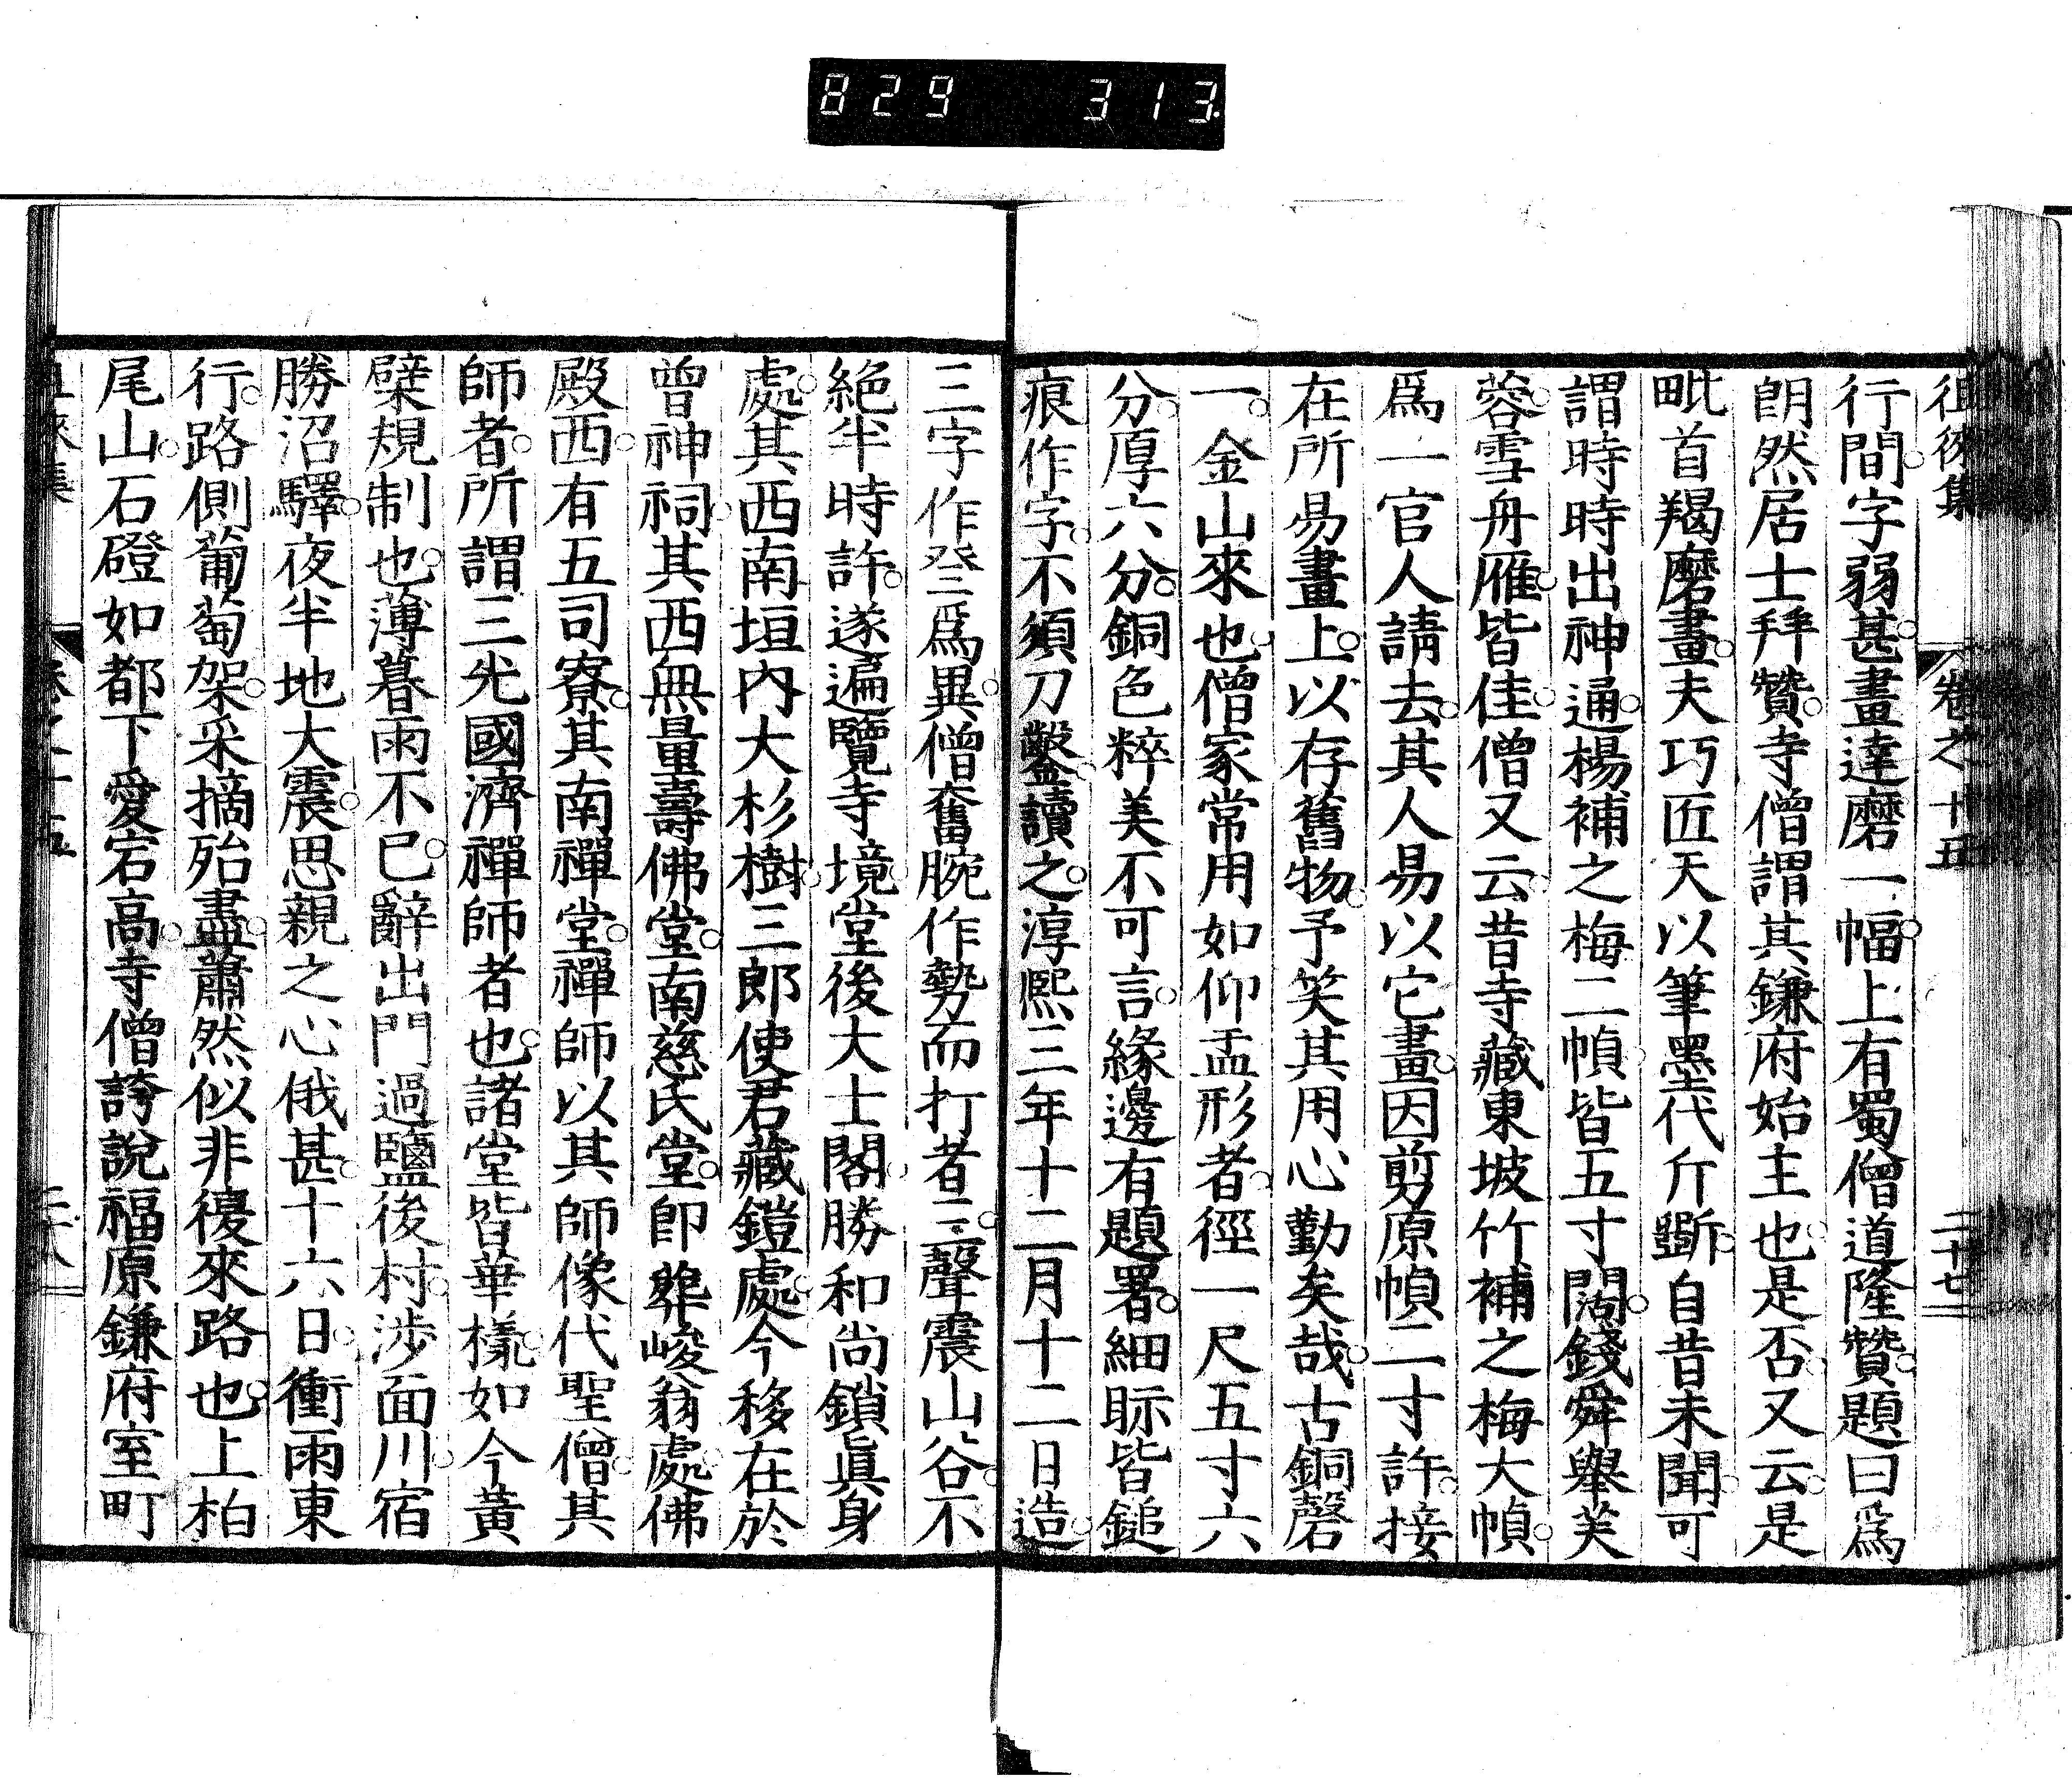 829 313
徂徠集 卷之十五 二十七
行間字弱甚畫達磨一幅上有蜀僧道隆贊題曰爲
朗然居士拜贊寺僧謂其鎌府始主也是否又云是
毗首羯磨畫夫巧匠天以筆墨代斤斲自昔未聞可
謂時時出神通楊補之梅二幀皆五寸闊錢舜舉芙
蓉雪舟雁皆佳僧又云昔寺藏東坡竹補之梅大幀
爲一官人請去其人易以它畫因剪原幀二寸許接
在所易畫上以存舊物予笑其用心勤矣哉古銅磬
一金山來也僧家常用如仰盂形者徑一尺五寸六
分厚六分銅色粹美不可言緣邊有題署細眎皆鎚
痕作字不須刀鑿讀之淳熙三年十二月十二日造
三字作登爲異僧奮腕作勢而打者三聲震山谷不
絶半時許遂遍覽寺境堂後大士閣勝和尚鎖眞身
處其西南垣內大杉樹三郎使君藏鎧處今移在於
曾神祠其西無量壽佛堂南慈氏堂卽葬峻翁處佛
殿西有五司寮其南禪堂禪師以其師像代聖僧其
師者所謂三光國濟禪師者也諸堂皆華樣如今黃
檗規制也薄暮雨不已辭出門過鹽後村涉面川宿
勝沼驛夜半地大震思親之心俄甚十六日衝雨東
行路側葡萄架采摘殆盡蕭然似非復來路也上柏
尾山石磴如都下愛宕高寺僧誇說福原鎌府室町
徂徠集 卷之十五 二十八